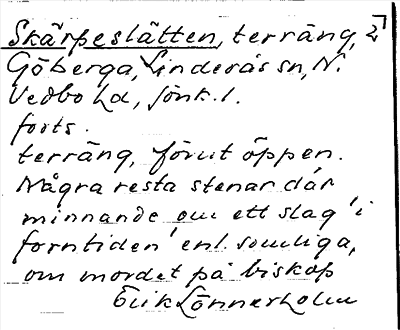 Skärpeslätten, terräng, 2
Göberga, Linderås sn, N.
Vedbo hd, Jönk. l.
forts.
terräng, förut öppen.
Några resta stenar där
minnande om ett slag i
forntiden enl. somliga,
om mordet på biskop
Erik Lönnerholm